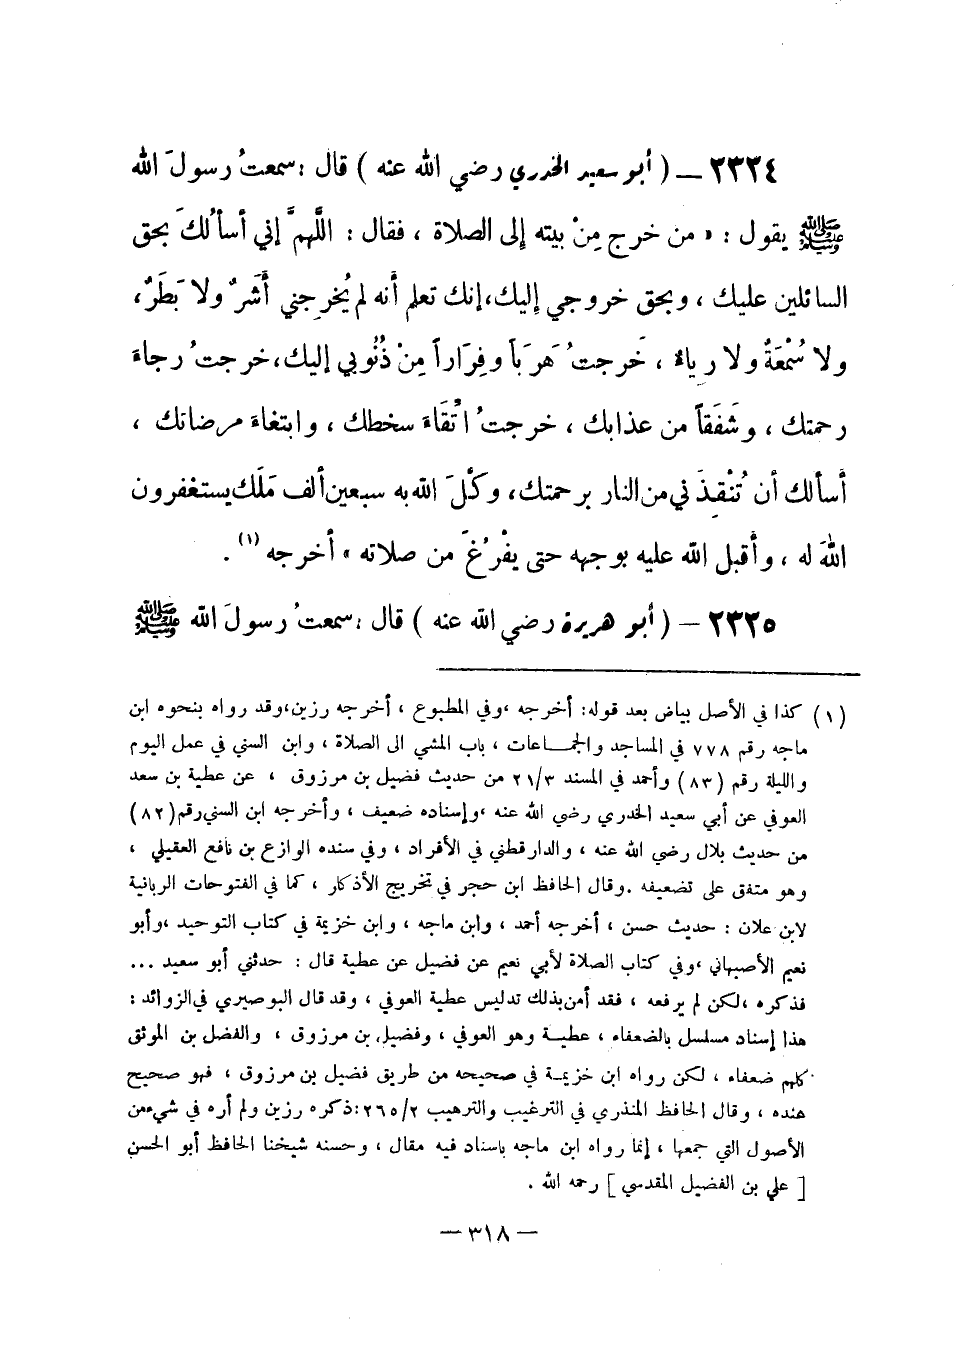 ٢٣٣٤ – ( أبو سعيد الخدري رضي الله عنه ) قال : سمعتُ رسولَ الله
ﷺ يقول : « من خرج مِنْ بيته إلى الصلاة ، فقال : اللَّهمَّ إني أسألُكَ بحق
السائلين عليك ، وبحق خروجي إليك ، إنك تعلم أنه لم يُخرجني أَشَرٌ ولا بَطَرٌ ،
ولا سُمْعَةٌ ولا رياءٌ ، خَرجتُ هَرَباً وفِرَاراً مِنْ ذُنُوبي إليك ، خرجتُ رجاءَ
رحمتك ، وشَفَقاً من عذابك ، خرجتُ اتِّقَاءَ سخطك ، وابتغاءَ مرضاتك ،
أسألك أن تُنْقِذَني من النار برحمتك ، وكَّلَ الله به سبعين ألف مَلَك يستغفرون
اللهَ له ، وأقبل الله عليه بوجهه حتى يَفْرُغَ من صلاته » أخرجه (١) .
٢٣٣٥ – ( أبو هريرة رضي الله عنه ) قال : سمعتُ رسولَ الله ﷺ
(١) كذا في الأصل بياض بعد قوله : أخرجه ، وفي المطبوع ، أخرجه رزين ، وقد رواه بنحوه ابن
ماجه رقم ٧٧٨ في المساجد والجماعات ، باب المشي الى الصلاة ، وابن السني في عمل اليوم
والليلة رقم (٨٣) وأحمد في المسند ٢١/٣ من حديث فضيل بن مرزوق ، عن عطية بن سعد
العوفي عن أبي سعيد الخدري رضي الله عنه ، وإسناده ضعيف ، وأخرجه ابن السني رقم (٨٢)
من حديث بلال رضي الله عنه ، والدارقطني في الأفراد ، وفي سنده الوازع بن نافع العقيلي ،
وهو متفق على تضعيفه . وقال الحافظ ابن حجر في تخريج الأذكار ، كما في الفتوحات الربانية
لابن علان : حديث حسن ، أخرجه أحمد ، وابن ماجه ، وابن خزيمة في كتاب التوحيد ، وأبو
نعيم الأصبهاني ، وفي كتاب الصلاة لأبي نعيم عن فضيل عن عطية قال : حدثني أبو سعيد ...
فذكره ، لكن لم يرفعه ، فقد أمن بذلك تدليس عطية العوفي ، وقد قال البوصيري في الزوائد :
هذا إسناد مسلسل بالضعفاء ، عطية وهو العوفي ، وفضيل بن مرزوق ، والفضل بن الموثق
كلهم ضعفاء ، لكن رواه ابن خزيمة في صحيحه من طريق فضيل بن مرزوق ، فهو صحيح
عنده ، وقال الحافظ المنذري في الترغيب والترهيب ٢٦٥/٢ : ذكره رزين ولم أره في شيء من
الأصول التي جمعها ، إنما رواه ابن ماجه باسناد فيه مقال ، وحسنه شيخنا الحافظ أبو الحسن
[ علي بن الفضيل المقدسي ] رحمه الله .
– ٣١٨ –